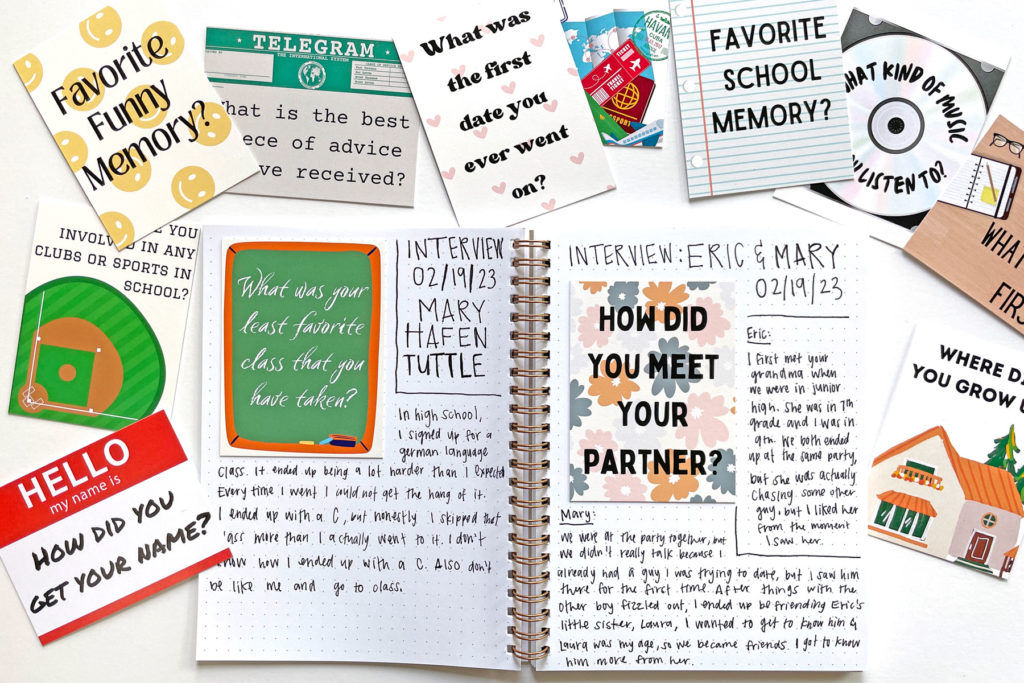 Favorite
Funny
Memory?
TELEGRAM
THE INTERNATIONAL SYSTEM
What is the best
piece of advice
have received?
What was
the first
date you
ever went
on?
HAVANA
CUBA
TICKET
PASSPORT
FAVORITE
SCHOOL
MEMORY?
WHAT KIND OF MUSIC
LISTEN TO?
WHAT
FIRS
YOU
INVOLVED IN ANY
CLUBS OR SPORTS IN
SCHOOL?
HELLO
my name is
HOW DID YOU
GET YOUR NAME?
What was your
least favorite
class that you
have taken?
INTERVIEW
02/19/23
MARY
HAFEN
TUTTLE
In high school,
I signed up for a
german language
class. It ended up being a lot harder than I expected.
Every time I went I could not get the hang of it.
I ended up with a C, but honestly I skipped that
class more than I actually went to it. I don't
know how I ended up with a C. Also don't
be like me and go to class.
INTERVIEW: ERIC & MARY
02/19/23
HOW DID
YOU MEET
YOUR
PARTNER?
Eric:
I first met your
grandma when
we were in junior
high. She was in 7th
grade and I was in
9th. We both ended
up at the same party,
but she was actually
chasing some other
guy, but I liked her
from the moment
I saw her.
Mary:
We were at the party together, but
we didn't really talk because I
already had a guy I was trying to date, but I saw him
there for the first time. After things with the
other boy fizzled out, I ended up be friending Eric's
little sister, Laura, I wanted to get to know him &
Laura was my age, so we became friends. I got to know
him more from her.
WHERE D
YOU GROW U